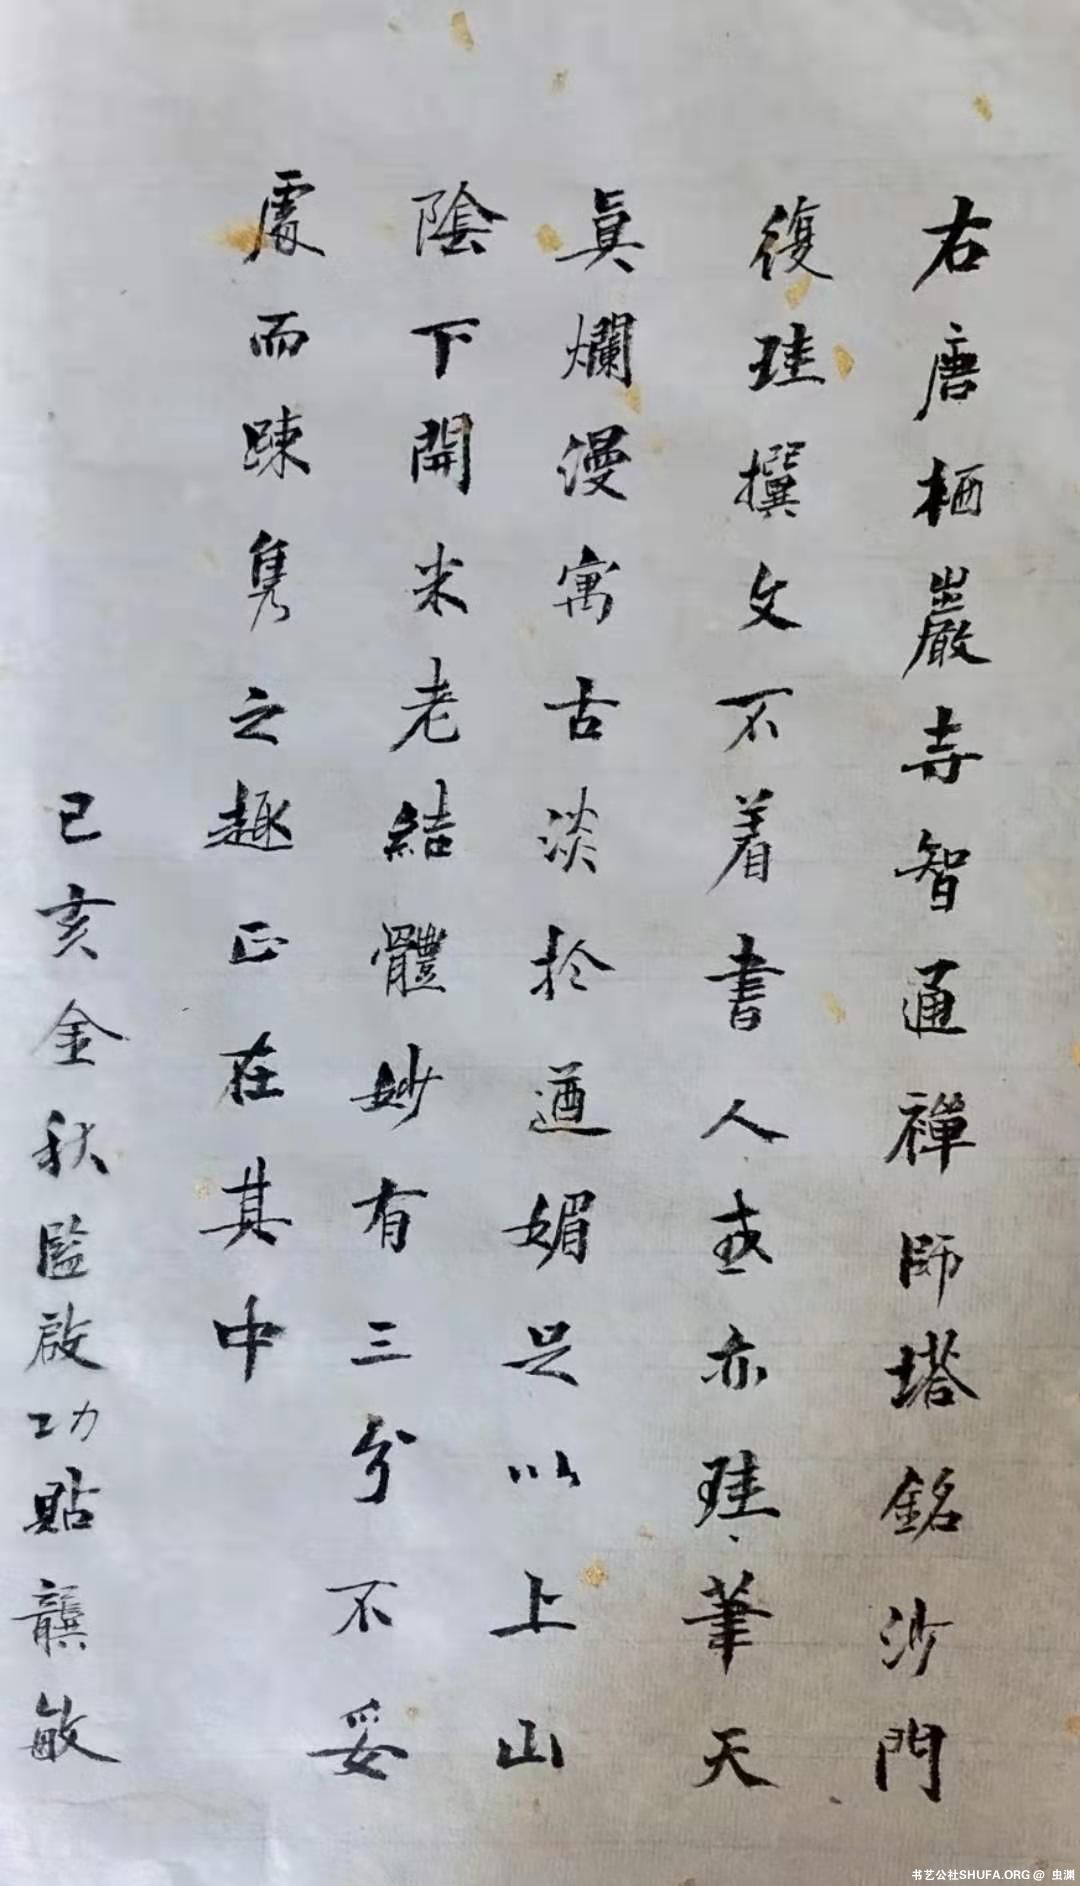 右唐栖巖寺智通禪師塔銘沙門
復珪撰文不着書人或亦珪筆天
眞爛漫寓古淡於遒媚足以上山
陰下開米老結體妙有三分不妥
處而踈隽之趣正在其中
己亥金秋臨啟功貼龔敏
书艺公社SHUFA.ORG @ 虫渊